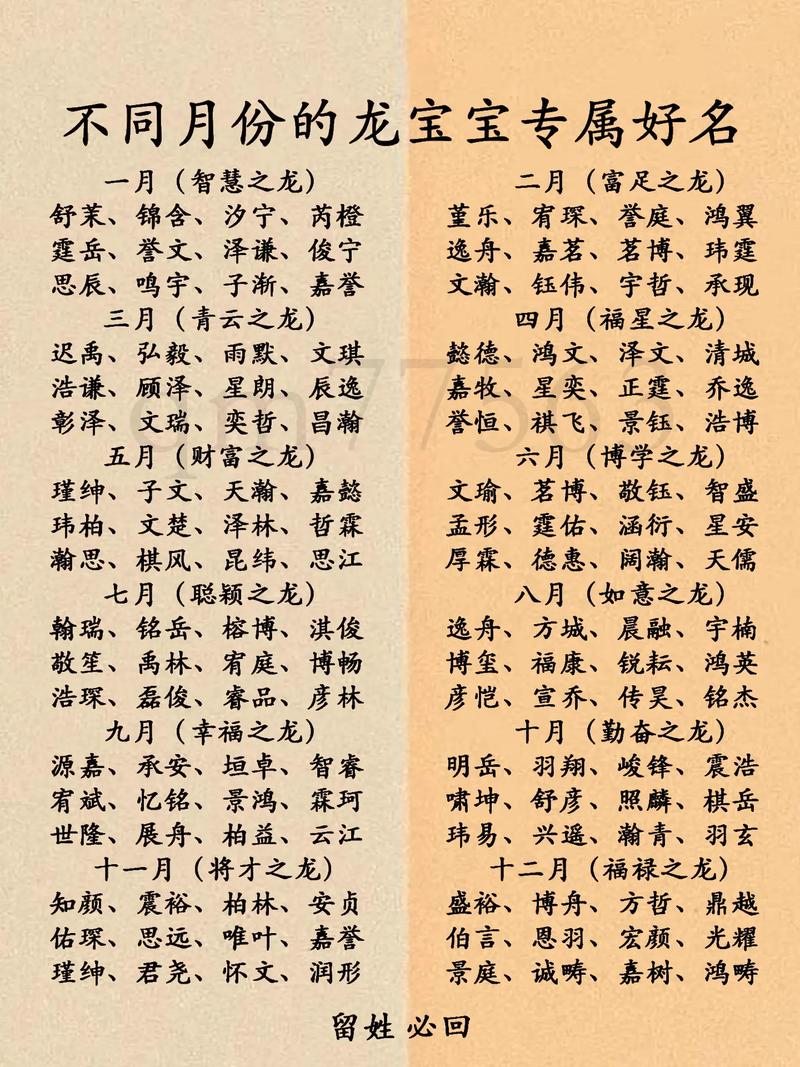 不同月份的龙宝宝专属好名
一月（智慧之龙）
舒茉、锦含、汐宁、芮橙
霆岳、誉文、泽谦、俊宁
思辰、鸣宇、子渐、嘉誉
二月（富足之龙）
堇乐、宥琛、誉庭、鸿翼
逸舟、嘉茗、茗博、玮霆
文瀚、钰伟、宇哲、承现
三月（青云之龙）
迟禹、弘毅、雨默、文琪
浩谦、顾泽、星朗、辰逸
彰泽、文瑞、奕哲、昌瀚
四月（福星之龙）
懿德、鸿文、泽文、清城
嘉牧、星奕、正霆、乔逸
誉恒、祺飞、景钰、浩博
五月（财富之龙）
瑾绅、子文、天瀚、嘉懿
玮柏、文楚、泽林、哲霖
瀚思、棋风、昆纬、思江
六月（博学之龙）
文瑜、茗博、敬钰、智盛
孟形、霆佑、涵衍、星安
厚霖、德惠、阔瀚、天儒
七月（聪颖之龙）
翰瑞、铭岳、榕博、淇俊
敬笙、禹林、宥庭、博畅
浩琛、磊俊、睿品、彦林
八月（如意之龙）
逸舟、方城、晨融、宇楠
博玺、福康、锐耘、鸿英
彦恺、宣乔、传昊、铭杰
九月（幸福之龙）
源嘉、承安、垣卓、智睿
宥斌、忆铭、景鸿、霖珂
世隆、展舟、柏益、云江
十月（勤奋之龙）
明岳、羽翔、峻锋、震浩
啸坤、舒彦、照麟、棋岳
玮易、兴遥、瀚青、羽玄
十一月（将才之龙）
知颜、震裕、柏林、安贞
佑琛、思远、唯叶、嘉誉
瑾绅、君尧、怀文、润形
十二月（福禄之龙）
盛裕、博舟、方哲、鼎越
伯言、恩羽、宏颜、光耀
景庭、诚畴、嘉树、鸿畴
留姓 必回